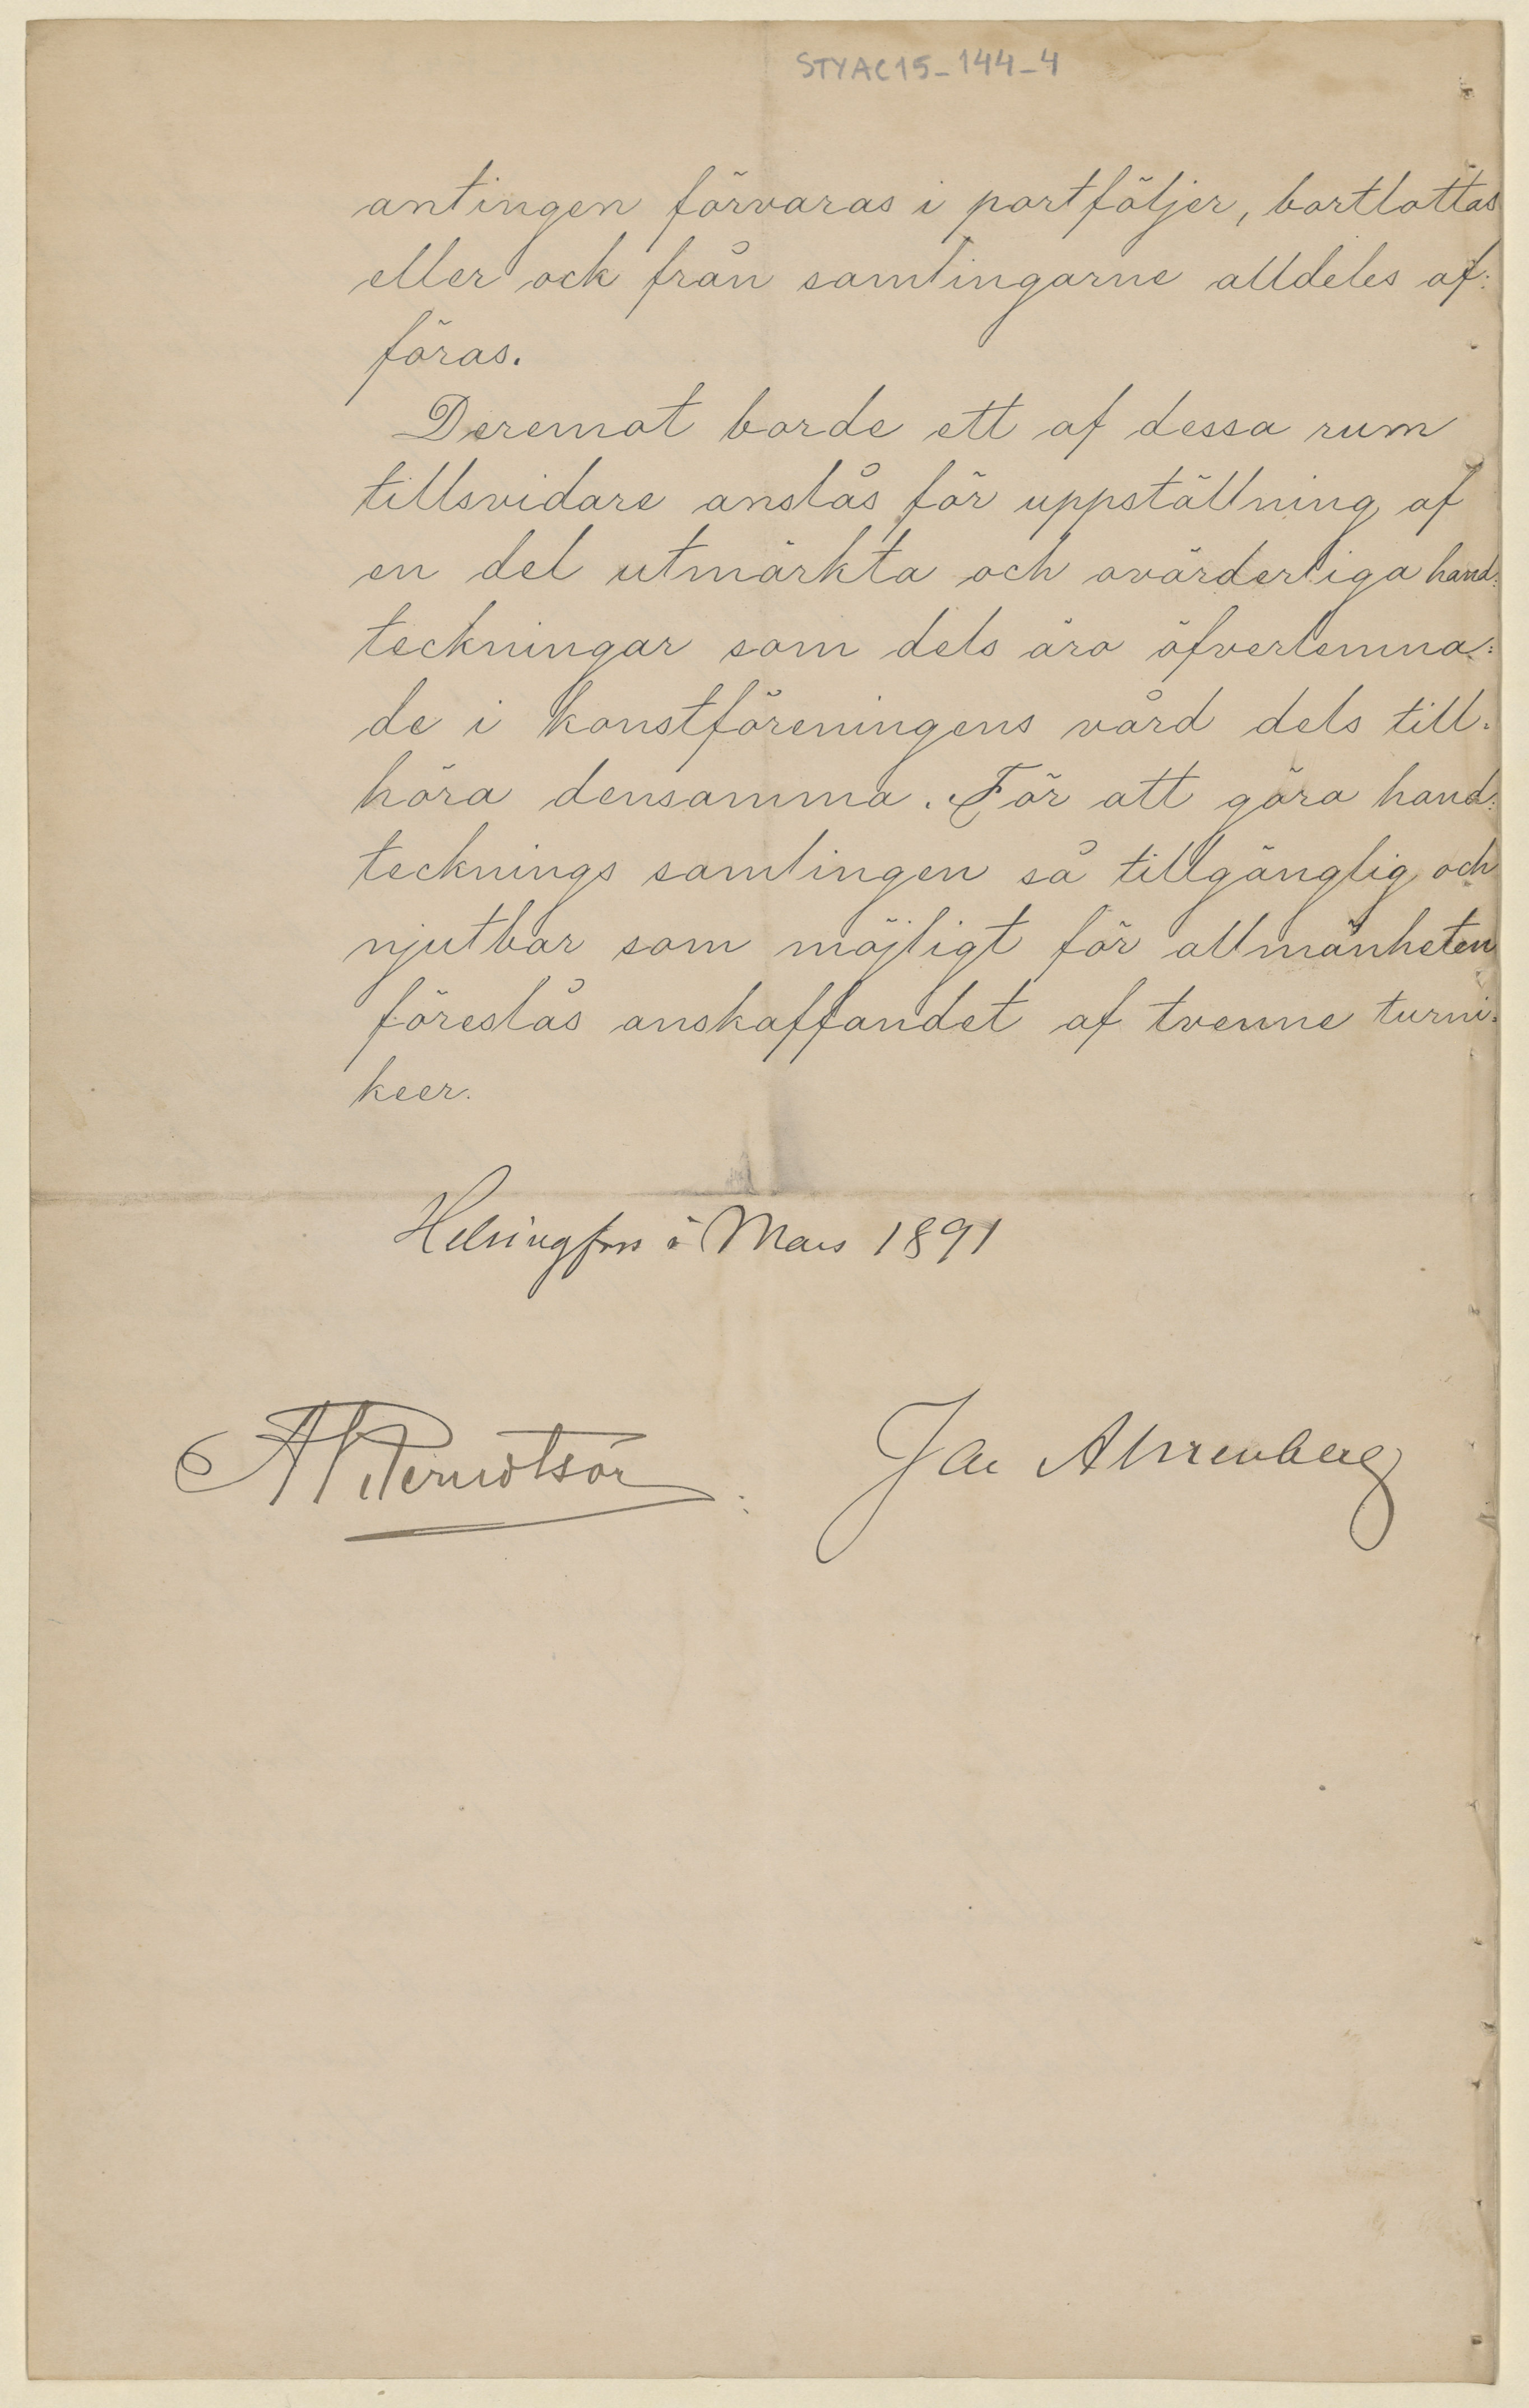 STYAC15-144-4
antingen förvaras i portföljer, bortlottas
eller ock från samlingarne alldeles af:
föras.
Deremot borde ett af dessa rum
tillsvidare anslås för uppställning af
en del utmärkta och ovärderliga hand:
teckningar som dels äro öfverlemna:
de i konstföreningens vård dels till:
höra densamma. För att göra hand:
tecknings samlingen så tillgänglig och
njutbar som möjligt för allmänheten
föreslås anskaffandet af tvenne turni:
keer.
Helsingfors i Mars 1891
Jac Ahrenberg